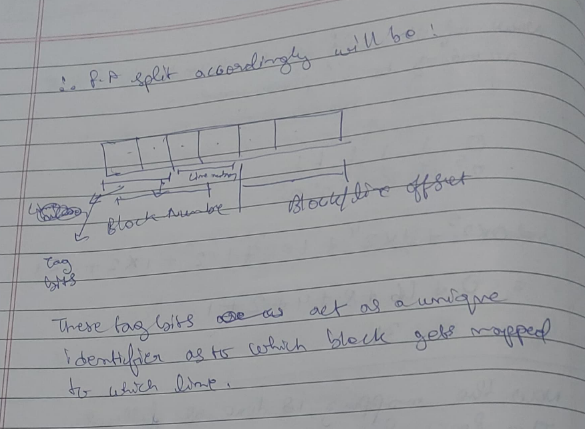 ∴ P.A split accordingly will be :
Line number
Block Number
Block/line offset
Tag
bits
These tag bits act as a unique
identifier as to which block gets mapped
to which line.